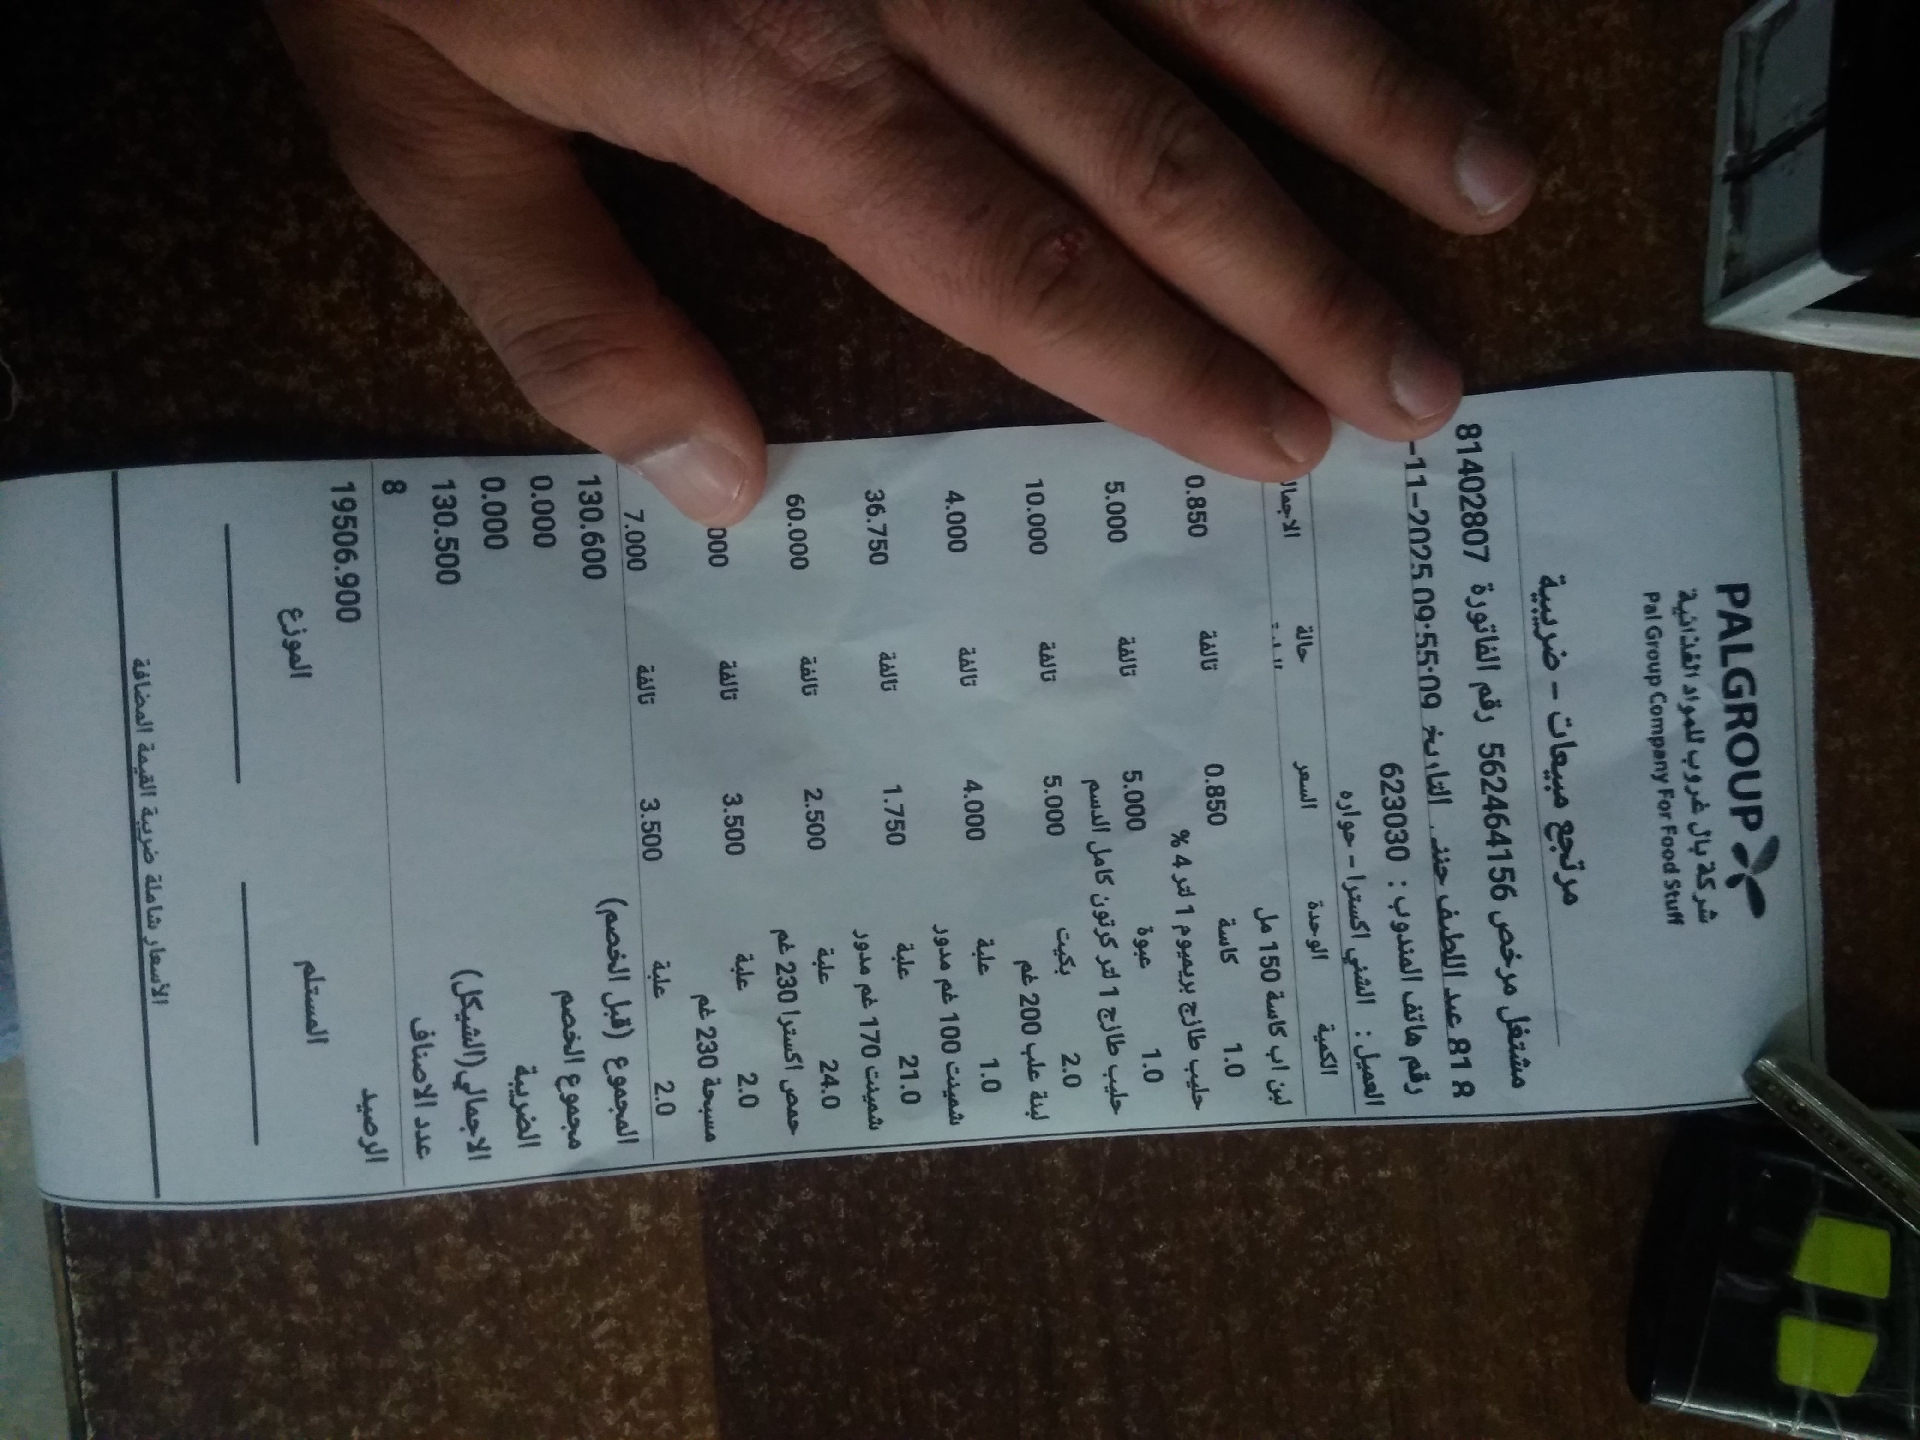 PALGROUP
شركة بال غروب للمواد الغذائية
Pal Group Company For Food Stuff
مرتجع مبيعات - ضريبية
مشتغل مرخص 562464156 رقم الفاتورة 81402807
818 عبد اللطيف التاريخ 09:55:09 2025-11-
رقم هاتف المندوب : 623030
العميل : الشني اكسترا - حواره
الكمية الوحدة السعر حالة الاجمال
لبن اب كاسة 150 مل
1.0 كاسة 0.850 تالفة 0.850
حليب طازج بريميوم 1 لتر 4 %
1.0 عبوة 5.000 تالفة 5.000
حليب طازج 1 لتر كرتون كامل الدسم
2.0 بكيت 5.000 تالفة 10.000
لبنة علب 200 غم
1.0 علبة 4.000 تالفة 4.000
شمينت 100 غم مدور
21.0 علبة 1.750 تالفة 36.750
شمينت 170 غم مدور
24.0 علبة 2.500 تالفة 60.000
حمص اكسترا 230 غم
2.0 علبة 3.500 تالفة 000
مسبحة 230 غم
2.0 علبة 3.500 تالفة 7.000
المجموع (قبل الخصم) 130.600
مجموع الخصم 0.000
الضريبة 0.000
الاجمالي(الشيكل) 130.500
عدد الاصناف 8
الرصيد 19506.900
المستلم الموزع
الأسعار شاملة ضريبة القيمة المضافة